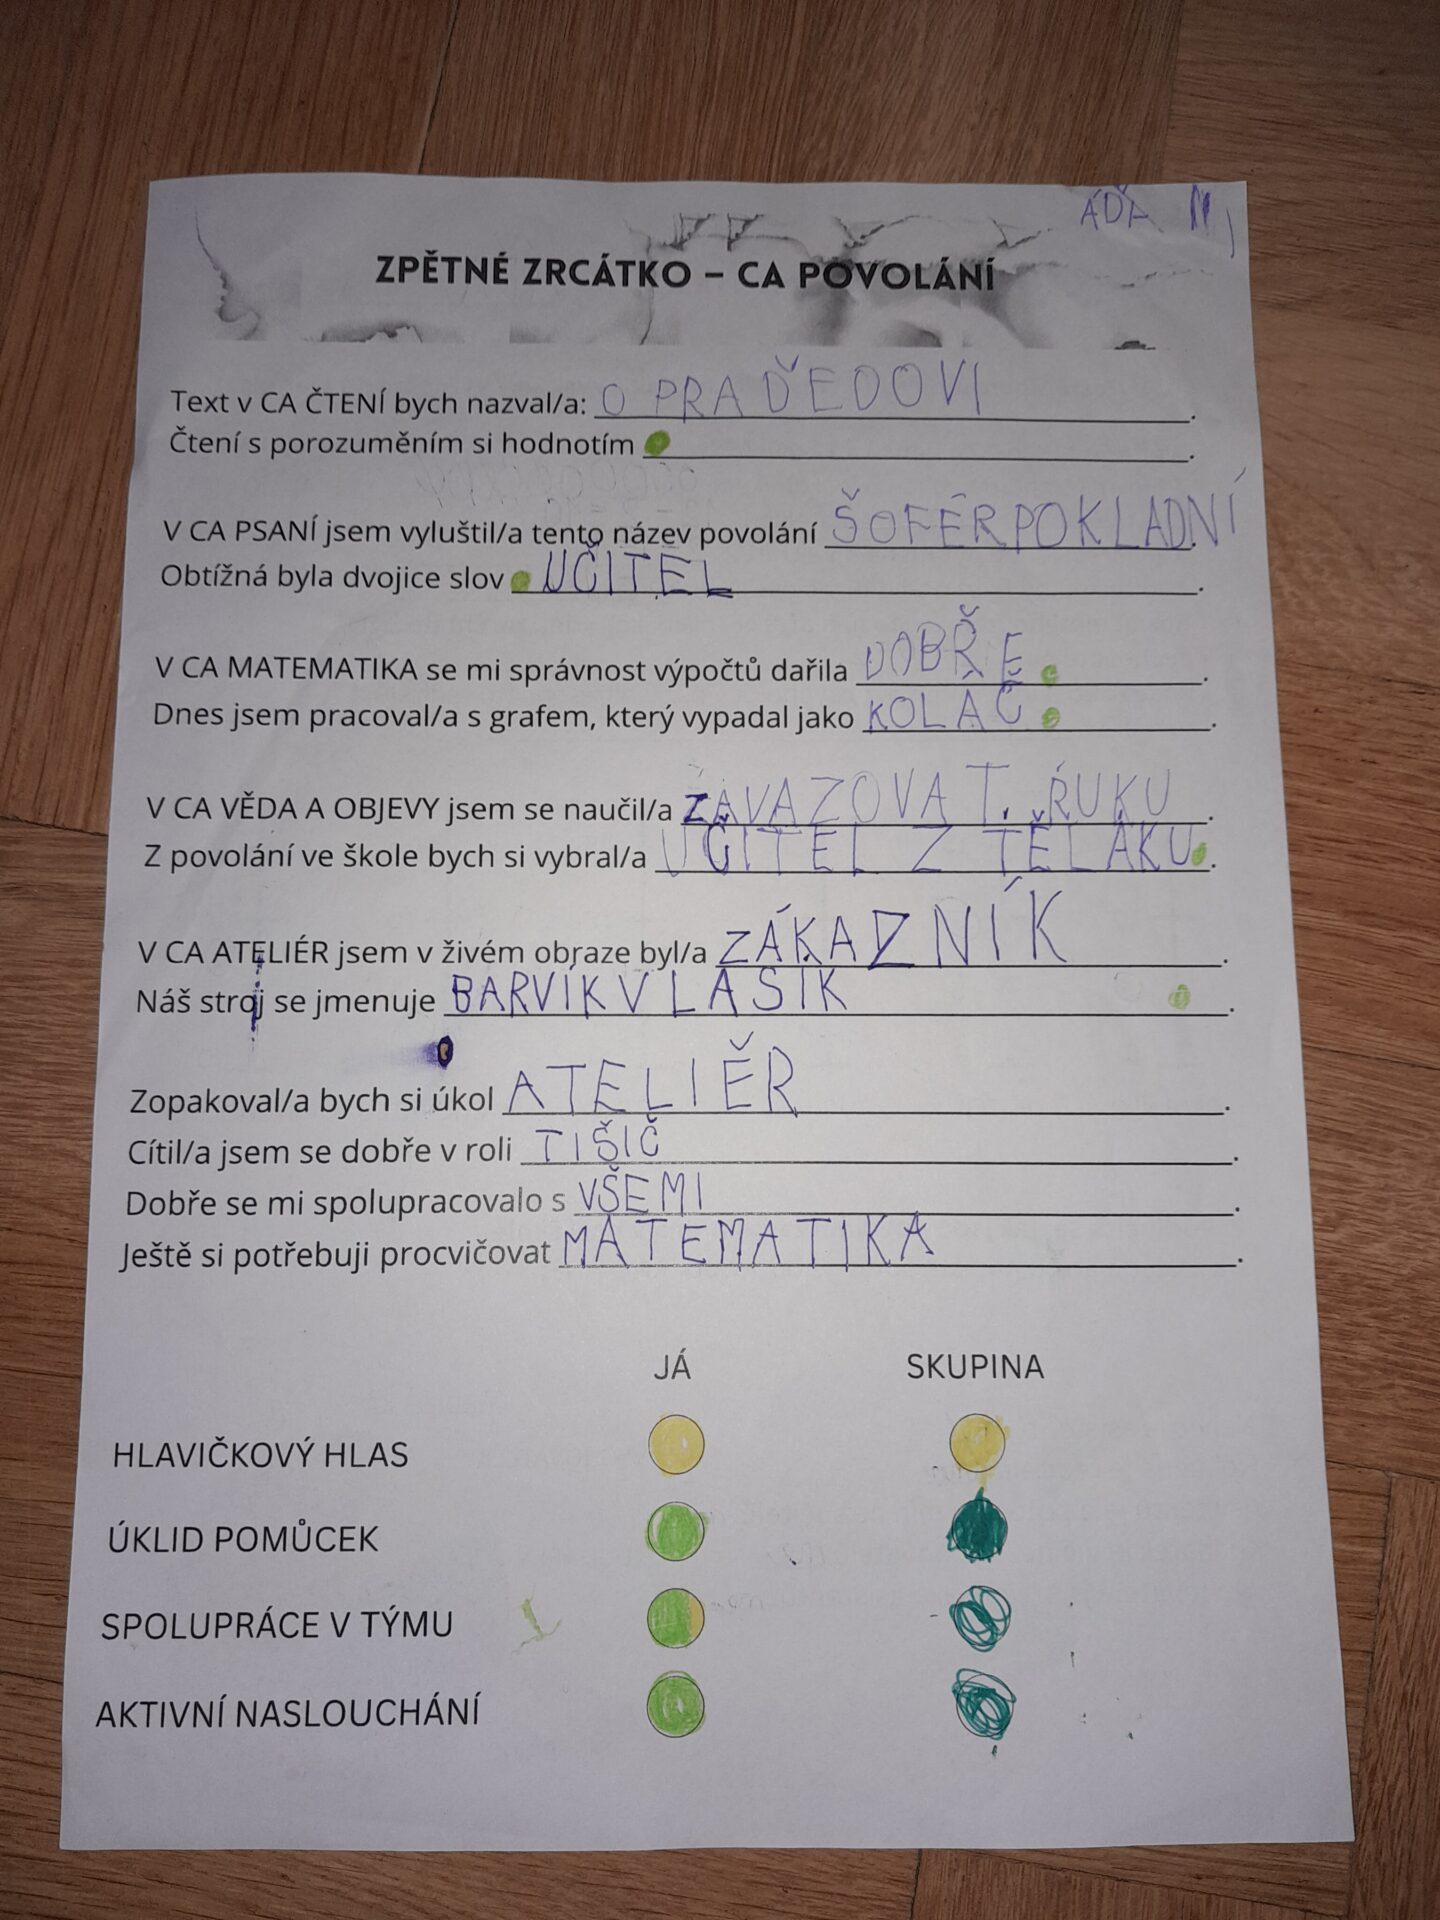 ÁĎA N,
ZPĚTNÉ ZRCÁTKO – CA POVOLÁNÍ
Text v CA ČTENÍ bych nazval/a: O PRAĎEDOVI.
Čtení s porozuměním si hodnotím .
V CA PSANÍ jsem vyluštil/a tento název povolání ŠOFÉRPOKLADNÍ.
Obtížná byla dvojice slov UČITEL.
V CA MATEMATIKA se mi správnost výpočtů dařila DOBŘE.
Dnes jsem pracoval/a s grafem, který vypadal jako KOLÁČ.
V CA VĚDA A OBJEVY jsem se naučil/a ZAVAZOVAT. RUKU.
Z povolání ve škole bych si vybral/a UČITEL Z TĚLÁKU.
V CA ATELIÉR jsem v živém obraze byl/a ZÁKAZNÍK.
Náš stroj se jmenuje BARVÍKVLASIK.
Zopakoval/a bych si úkol ATELIĚR.
Cítil/a jsem se dobře v roli TIŠIČ.
Dobře se mi spolupracovalo s VŠEMI.
Ještě si potřebuji procvičovat MATEMATIKA.
JÁ SKUPINA
HLAVIČKOVÝ HLAS
ÚKLID POMŮCEK
SPOLUPRÁCE V TÝMU
AKTIVNÍ NASLOUCHÁNÍ